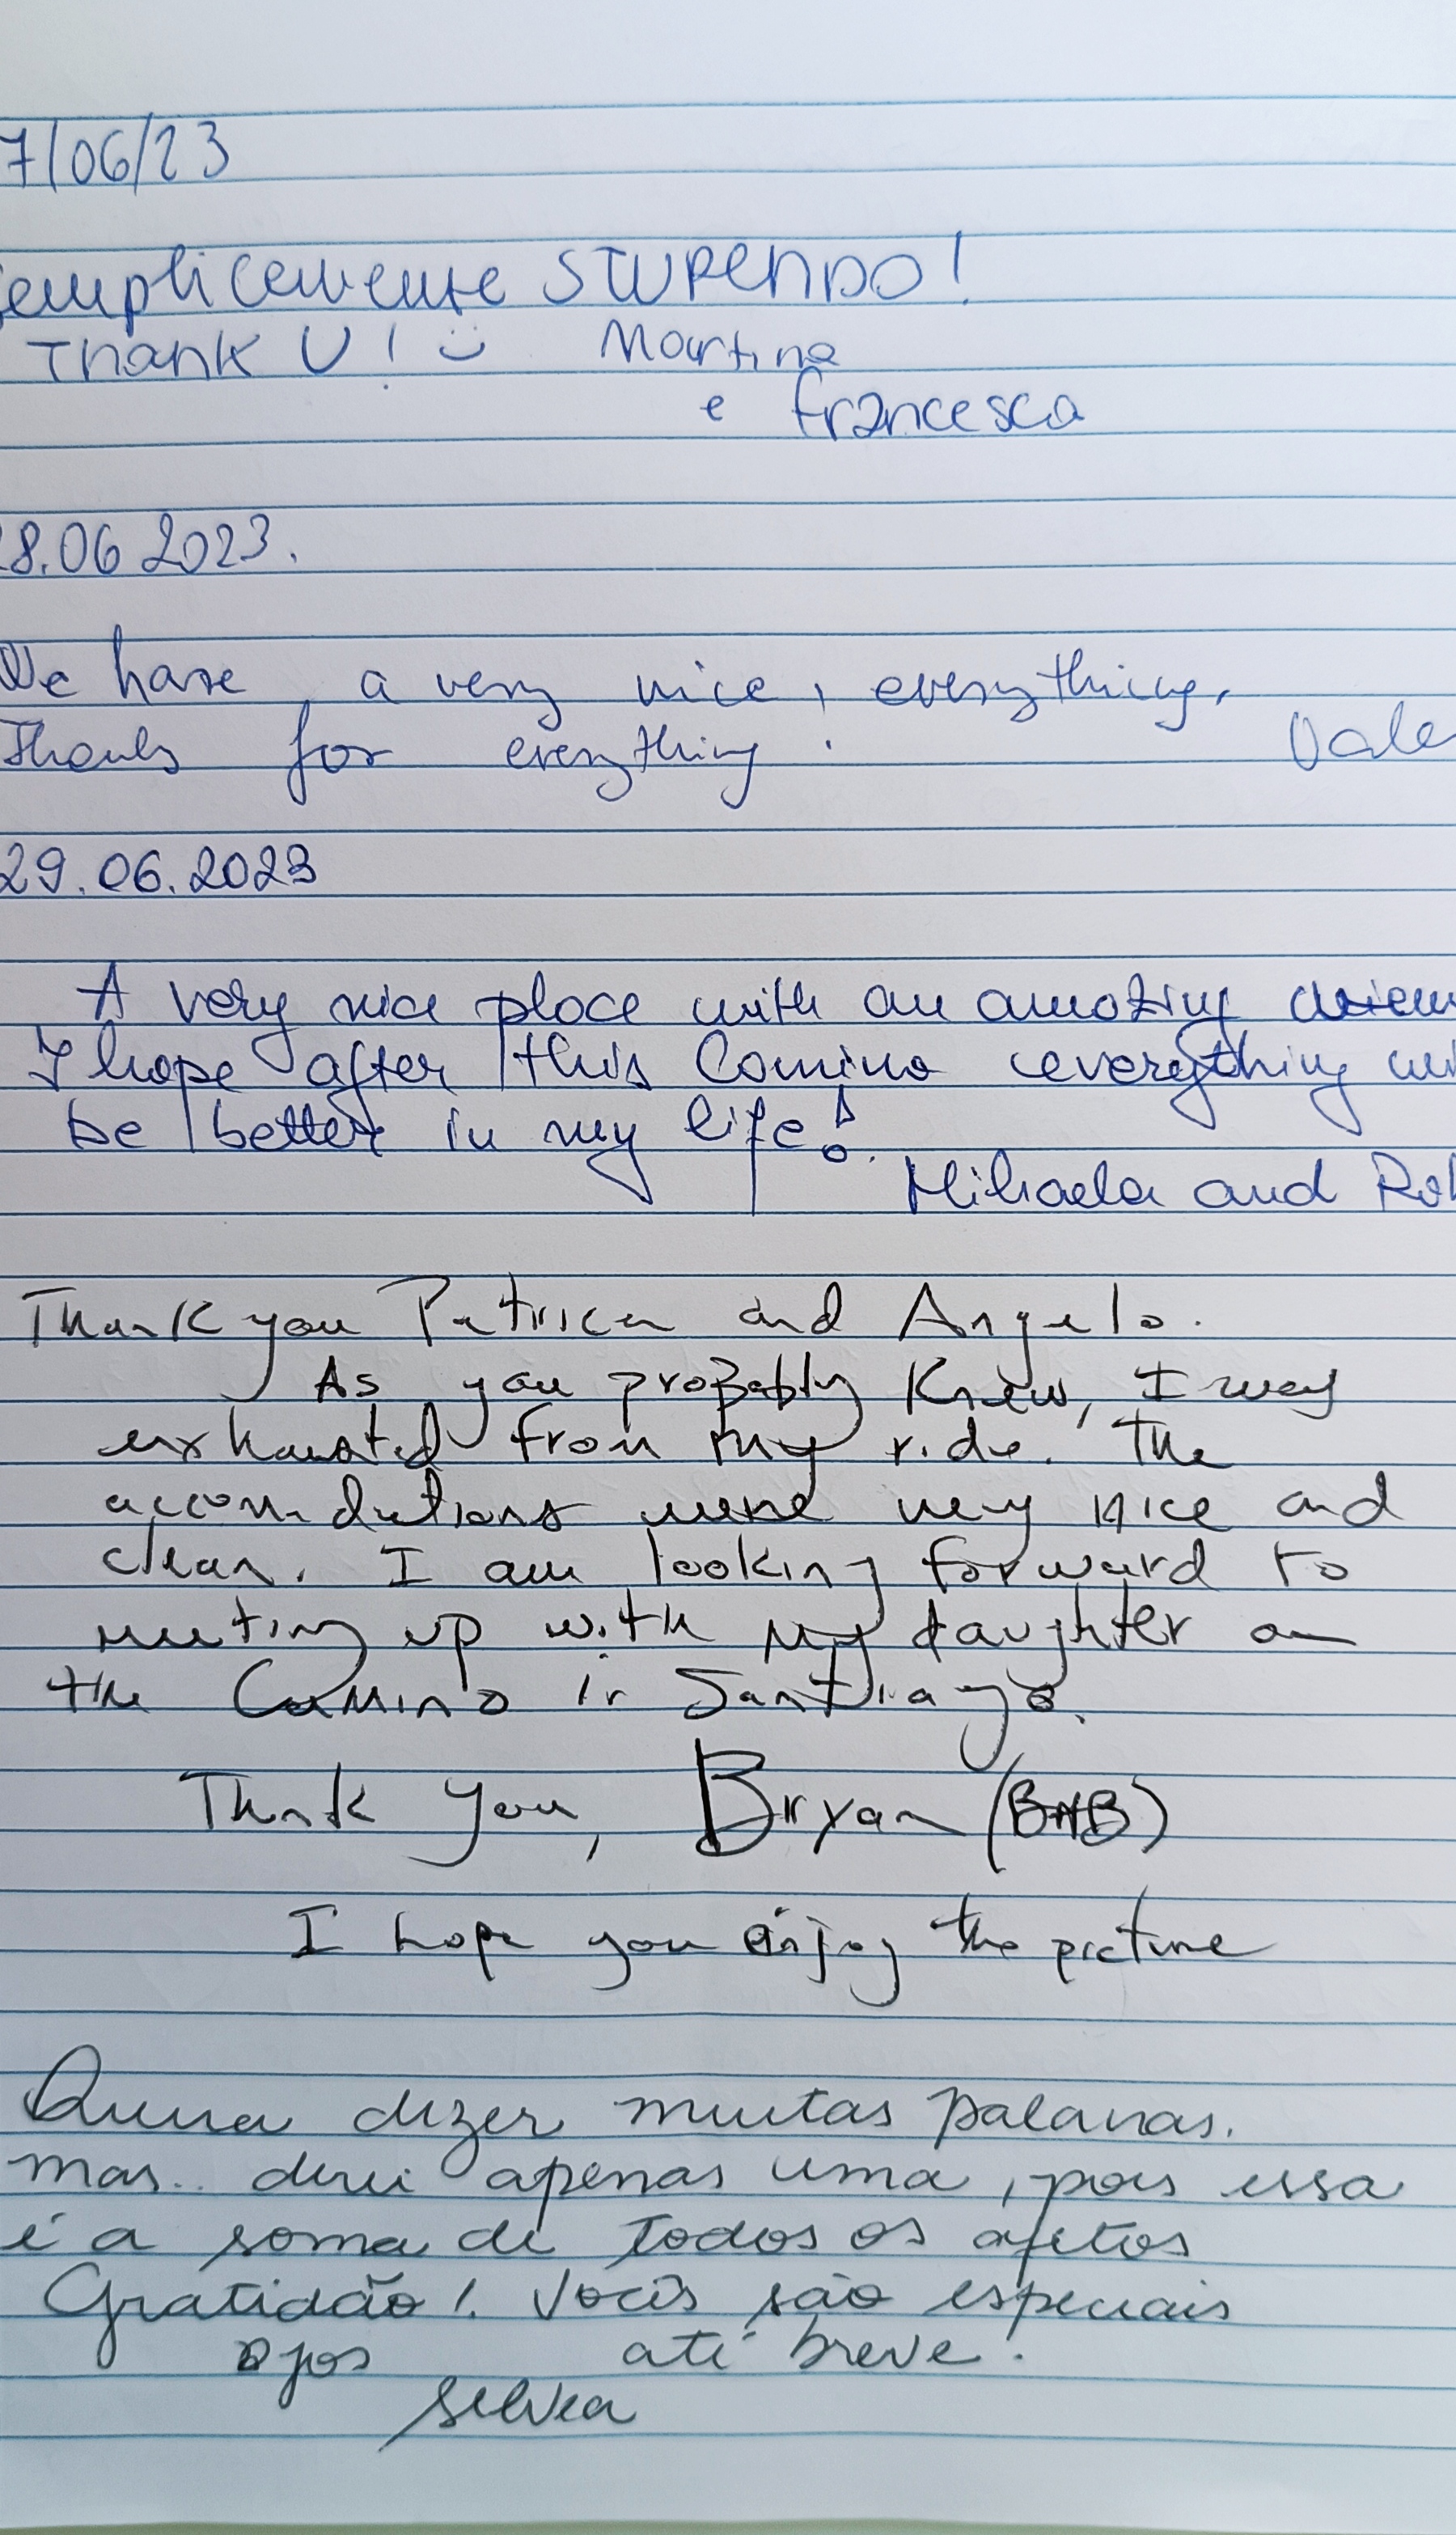 7/06/23
semplicemente STUPENDO!
Thank U! :) Martina
e Francesca
28.06 2023.
We have a very nice, everything,
Thanks for everything. Vale
29.06.2023
A very nice place with an amazing view
I hope after this Camino everything wi
be better in my life!
Mihaela and Rob
Thank you Patricia and Angelo.
As you probably knew, I was
exhausted from my ride. The
accomodations were very nice and
clean. I am looking forward to
meeting up with my daughter on
the Camino in Santiago.
Thank you, Bryan (BAB)
I hope you enjoy the picture
Queria dizer muitas palavras.
mas.. direi apenas uma, pois essa
é a soma de todos os afetos
Gratidão!. Vocês são especiais
até breve!
Silvia